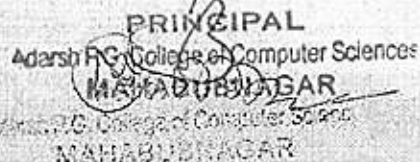 PRINCIPAL
Adarsh P.G. College of Computer Sciences
MAHABUBNAGAR
P.G. College of Computer Scien
MAHABUBNAGAR